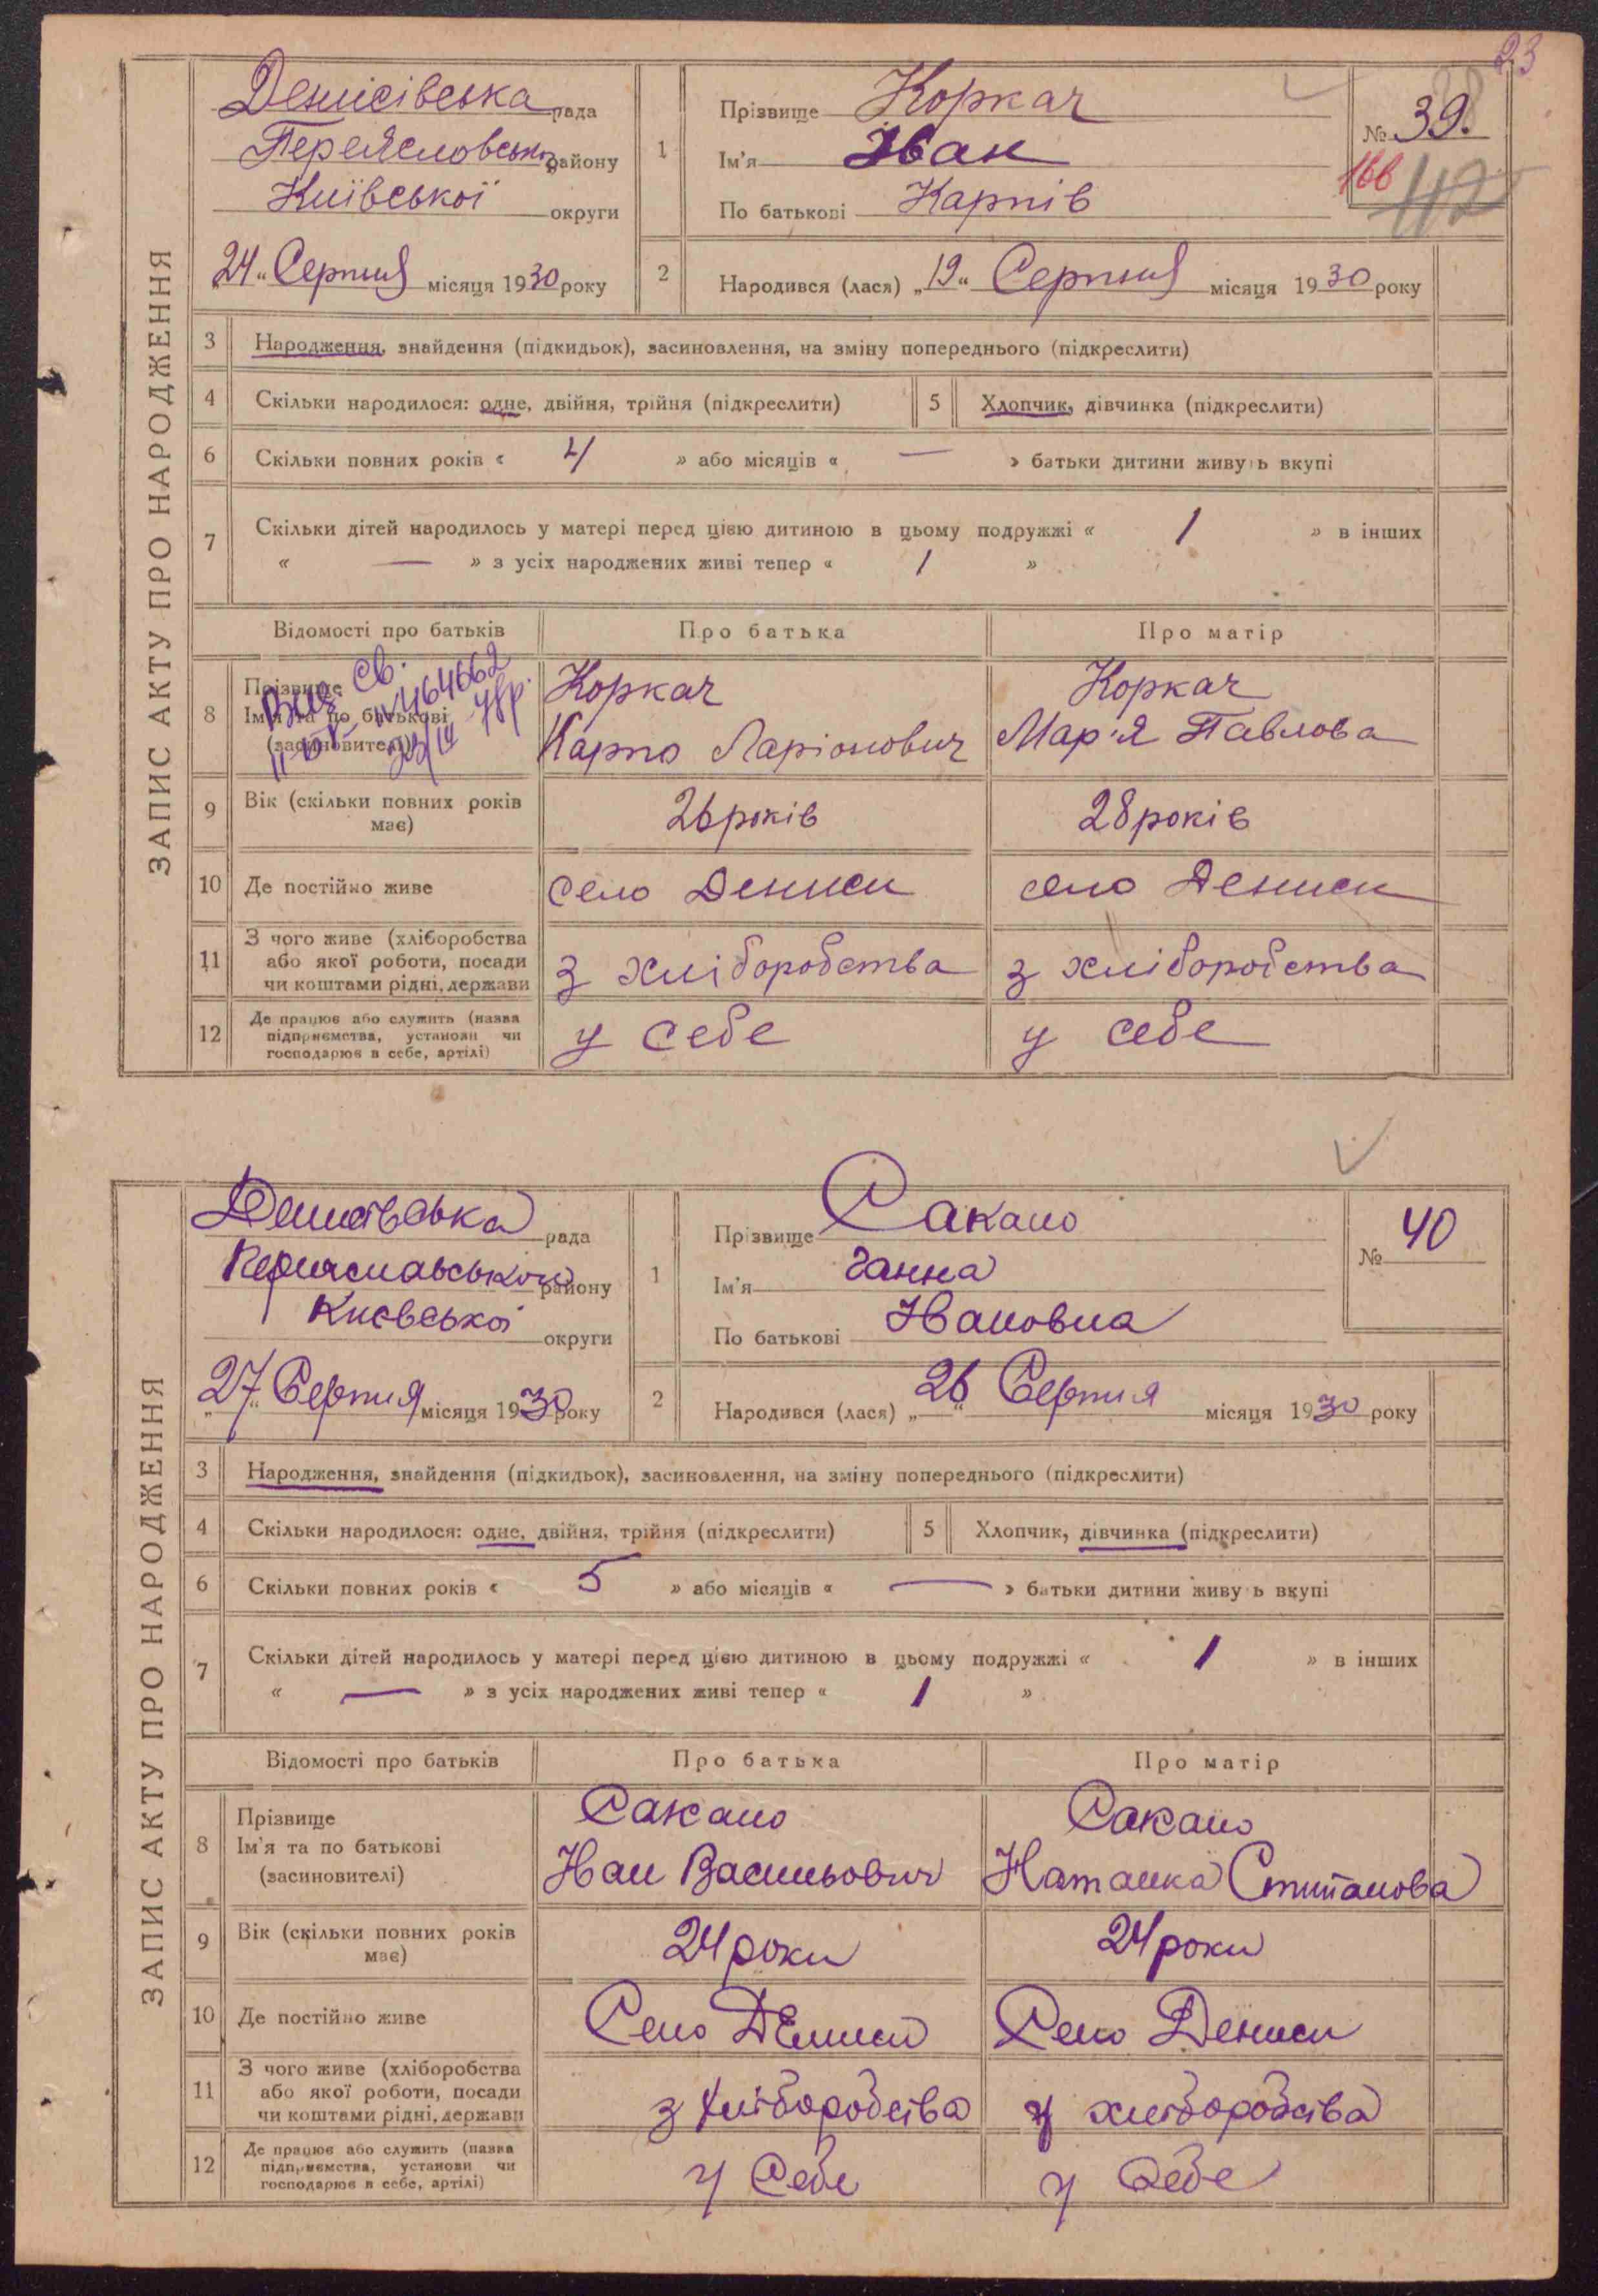 23
ЗАПИС АКТУ ПРО НАРОДЖЕННЯ
Денисівська рада
Переясловськ району
Київської округи
„24“ Серпня місяця 1930 року
1
Прізвище Коркач
Ім'я Іван
По батькові Карпів
№ 39.
166
42
2
Народився (лася) „19“ Серпня місяця 1930 року
3 Народження, знайдення (підкидьок), засиновлення, на зміну попереднього (підкреслити)
4 Скільки народилося: одне, двійня, трійня (підкреслити) 5 Хлопчик, дівчинка (підкреслити)
6 Скільки повних років « 4 » або місяців « — » батьки дитини живуть вкупі
7 Скільки дітей народилось у матері перед цією дитиною в цьому подружжі « 1 » в інших
« — » з усіх народжених живі тепер « 1 »
Відомості про батьків Про батька Про матір
8 Прізвище
Ім'я та по батькові
(засиновителі)
Вид. св.
464662
Коркач
Карпо Ларіонович
Коркач
Мар'я Павлова
9 Вік (скільки повних років має) 26 років 28 років
10 Де постійно живе село Дениси село Дениси
11 З чого живе (хліборобства
або якої роботи, посади
чи коштами рідні, держави
з хліборобства з хліборобства
12 Де працює або служить (назва
підприємства, установи чи
господарює в себе, артілі)
у себе у себе
ЗАПИС АКТУ ПРО НАРОДЖЕННЯ
Денисівська рада
Переяславської району
Києвської округи
„27“ Серпня місяця 1930 року
1
Прізвище Сакано
Ім'я Ганна
По батькові Івановна
№ 40
2
Народився (лася) „26“ Серпня місяця 1930 року
3 Народження, знайдення (підкидьок), засиновлення, на зміну попереднього (підкреслити)
4 Скільки народилося: одне, двійня, трійня (підкреслити) 5 Хлопчик, дівчинка (підкреслити)
6 Скільки повних років « 5 » або місяців « — » батьки дитини живуть вкупі
7 Скільки дітей народилось у матері перед цією дитиною в цьому подружжі « 1 » в інших
« — » з усіх народжених живі тепер « 1 »
Відомості про батьків Про батька Про матір
8 Прізвище
Ім'я та по батькові
(засиновителі)
Сакано
Іван Васильович
Сакано
Наталка Стипанова
9 Вік (скільки повних років має) 24 роки 24 роки
10 Де постійно живе Село Дениси Село Дениси
11 З чого живе (хліборобства
або якої роботи, посади
чи коштами рідні, держави
з хліборобства у хліборобства
12 Де працює або служить (назва
підприємства, установи чи
господарює в себе, артілі)
у Себе у Себе